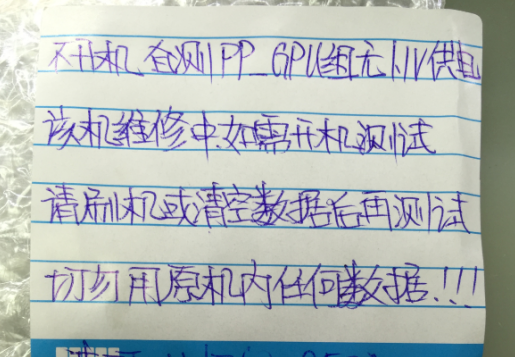 不开机,查测PP_GPU组无1.1V供电
该机维修中.如需开机测试
请刷机或清空数据后再测试
切勿用原机内任何数据.!!!